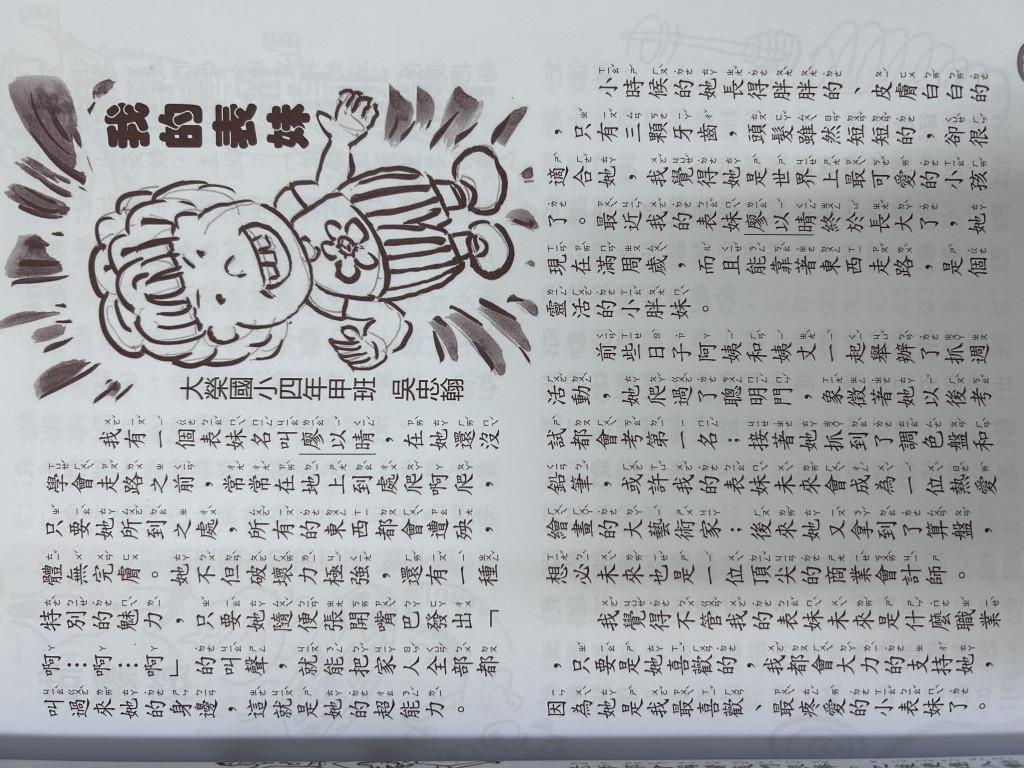 我的表妹
大榮國小四年甲班 吳忠翰
我有一個表妹名叫廖以晴，在她還沒
學會走路之前，常常在地上到處爬啊爬，
只要她所到之處，所有的東西都會遭殃，
體無完膚。她不但破壞力極強，還有一種
特別的魅力，只要她隨便張開嘴巴發出「
啊…啊…啊」的叫聲，就能把家人全部都
叫過來她的身邊，這就是她的超能力。
小時候的她長得胖胖的、皮膚白白的
，只有三顆牙齒，頭髮雖然短短的，卻很
適合她，我覺得她是世界上最可愛的小孩
了。最近我的表妹廖以晴終於長大了，她
現在滿周歲，而且能靠著東西走路，是個
靈活的小胖妹。
前些日子阿姨和姨丈一起舉辦了抓週
活動，她爬過了聰明門，象徵著她以後考
試都會考第一名；接著她抓到了調色盤和
鉛筆，或許我的表妹未來會成為一位熱愛
繪畫的大藝術家；後來她又拿到了算盤，
想必未來也是一位頂尖的商業會計師。
我覺得不管我的表妹未來是什麼職業
，只要是她喜歡的，我都會大力的支持她，
因為她是我最喜歡、最疼愛的小表妹了。